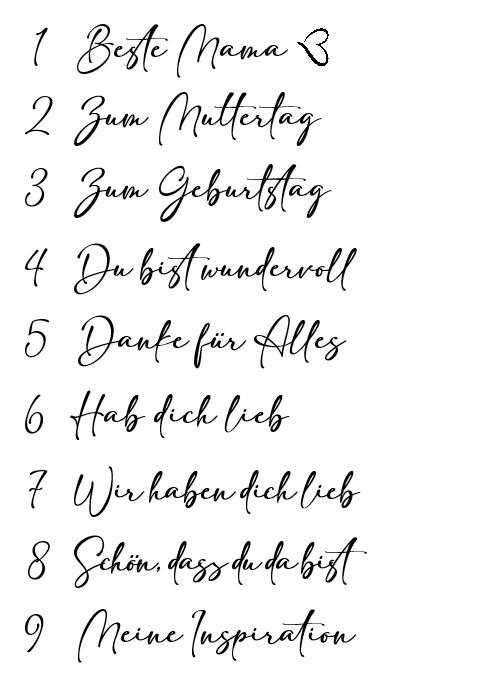 1 Beste Mama ♡
2 Zum Muttertag
3 Zum Geburtstag
4 Du bist wundervoll
5 Danke für Alles
6 Hab dich lieb
7 Wir haben dich lieb
8 Schön, dass du da bist
9 Meine Inspiration